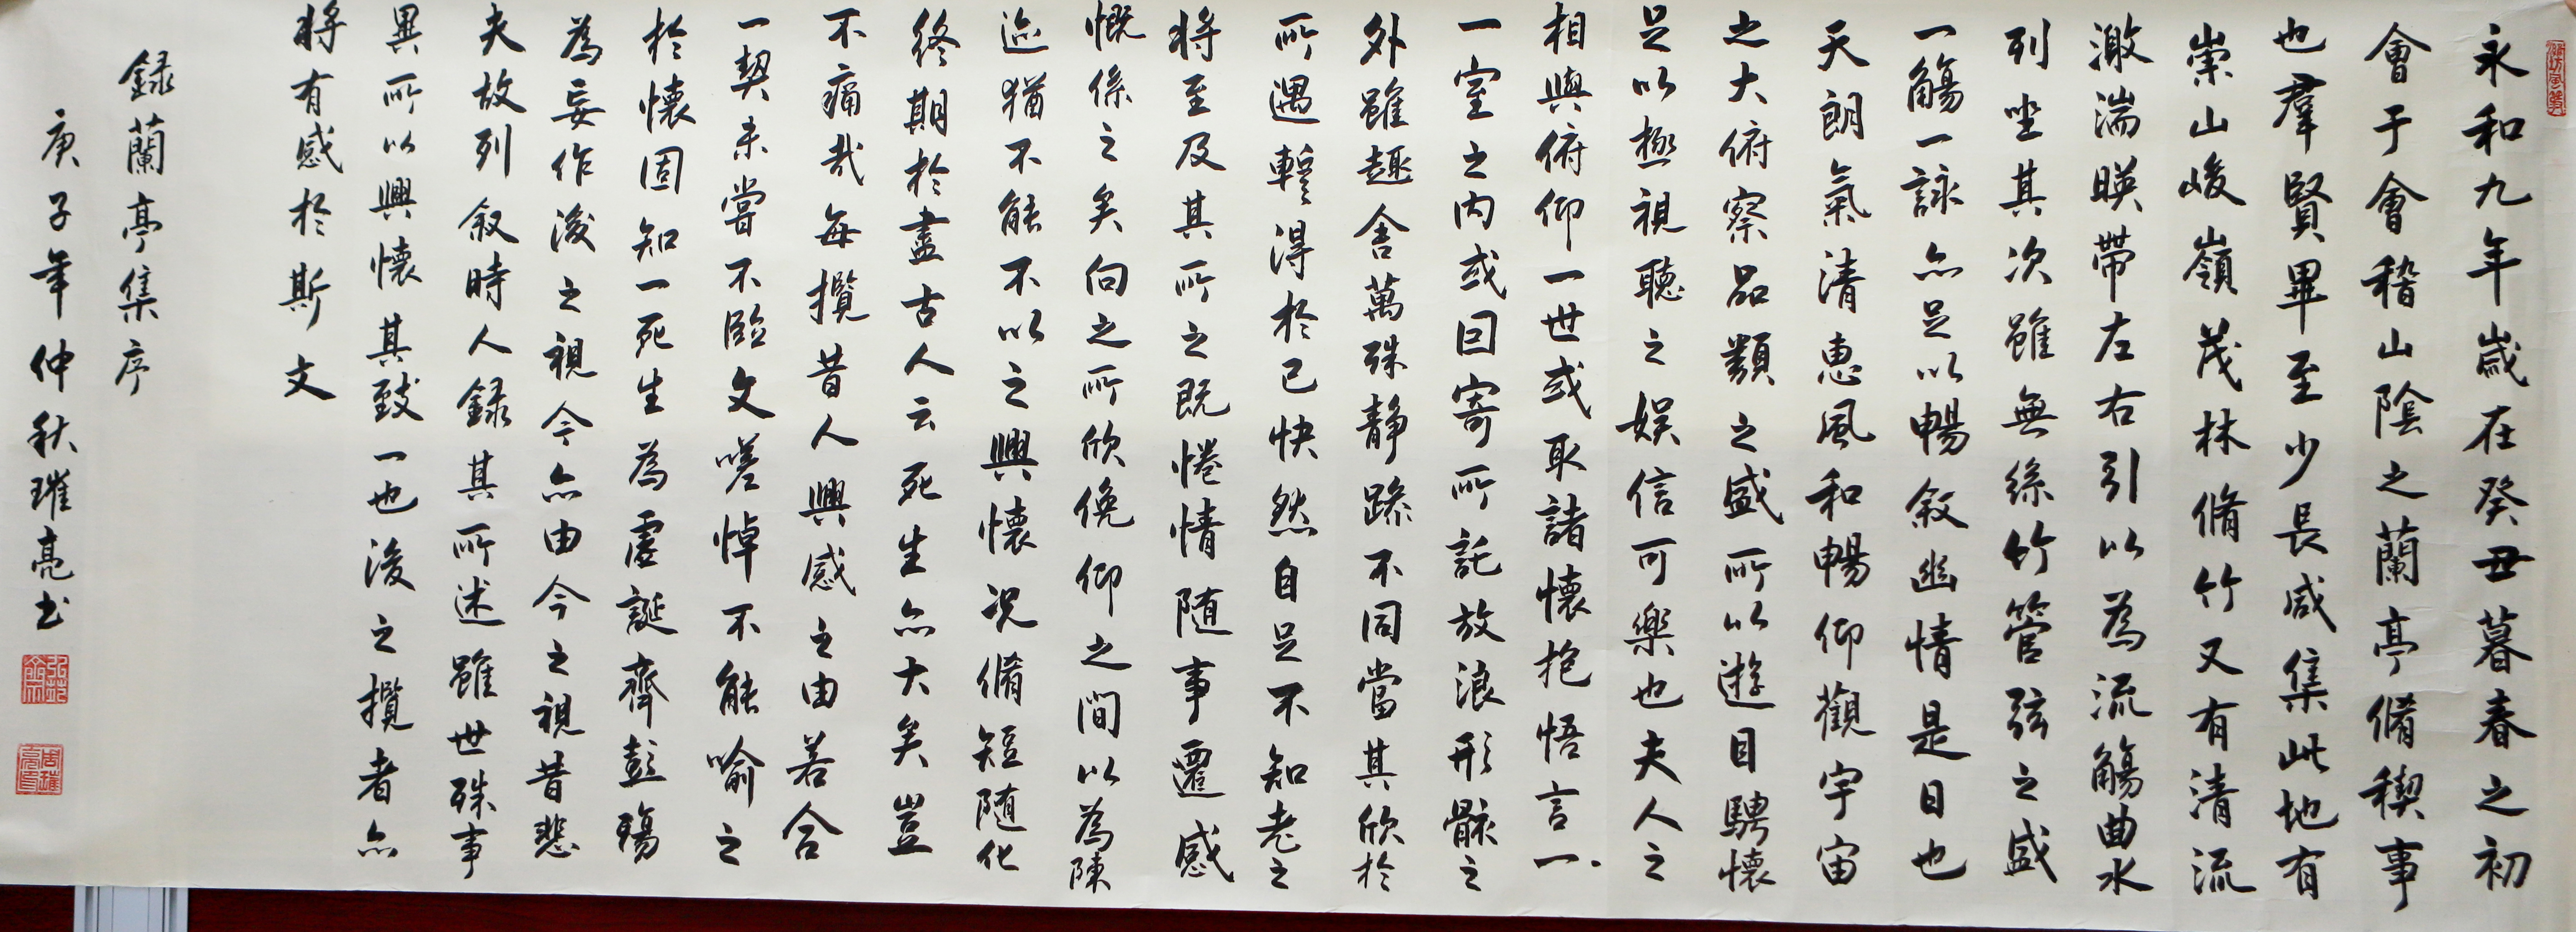 永和九年歲在癸丑暮春之初
會于會稽山陰之蘭亭脩稧事
也羣賢畢至少長咸集此地有
崇山峻嶺茂林脩竹又有清流
激湍暎帶左右引以為流觴曲水
列坐其次雖無絲竹管弦之盛
一觴一詠亦足以暢敘幽情是日也
天朗氣清惠風和暢仰觀宇宙
之大俯察品類之盛所以遊目騁懷
足以極視聽之娛信可樂也夫人之
相與俯仰一世或取諸懷抱悟言一
一室之内或因寄所託放浪形骸之
外雖趣舍萬殊靜躁不同當其欣於
所遇暫得於己快然自足不知老之
將至及其所之既惓情隨事遷感
慨係之矣向之所欣俛仰之間以為陳
迹猶不能不以之興懷況脩短隨化
終期於盡古人云死生亦大矣豈
不痛哉每攬昔人興感之由若合
一契未嘗不臨文嗟悼不能喻之
於懷固知一死生為虛誕齊彭殤
為妄作後之視今亦由今之視昔悲
夫故列敘時人録其所述雖世殊事
異所以興懷其致一也後之攬者亦
將有感於斯文
録蘭亭集序
庚子年仲秋璀亮书